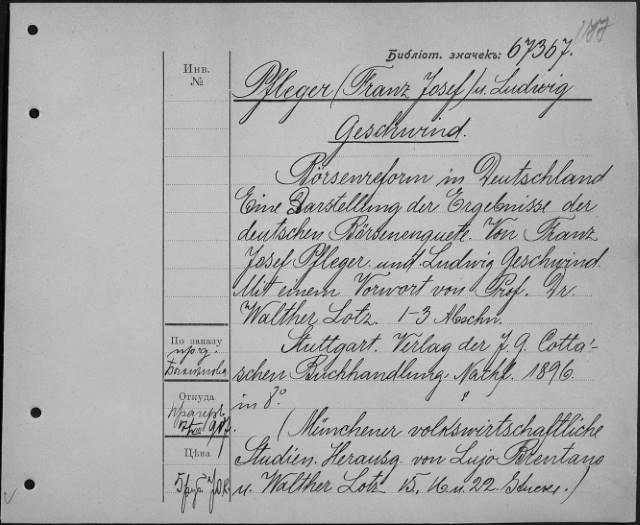 Библiот. значекъ: 67367.
Инв.
№
Pfleger (Franz Josef) u. Ludwig
Geschwind.
Börsenreform in Deutschland
Eine Darstellung der Ergebnisse der
deutschen Börsenenquete. Von Franz
Josef Pfleger und Ludwig Geschwind.
Mit einem Vorwort von Prof. Dr.
Walther Lotz. 1-3 Abschn.
Stuttgart. Verlag der J. G. Cotta'-
schen Buchhandlung Nachf. 1896.
in 8°.
(Münchener volkswirtschaftliche
Studien. Herausg. von Lujo Brentano
u. Walther Lotz 15, 16 u. 22 Stück.)
По заказу
проф.
Откуда
Цѣна
5 руб